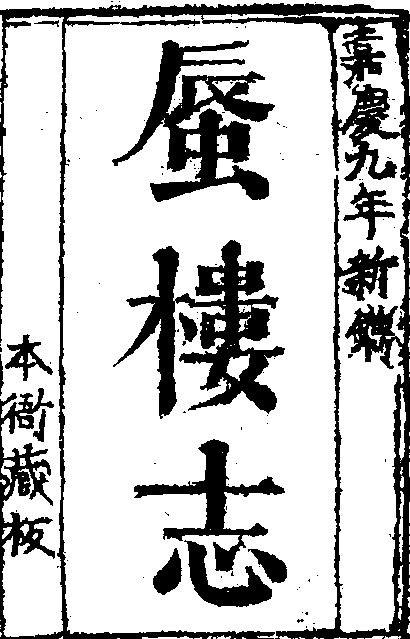 嘉慶九年新鐫
蜃樓志
本衙藏板